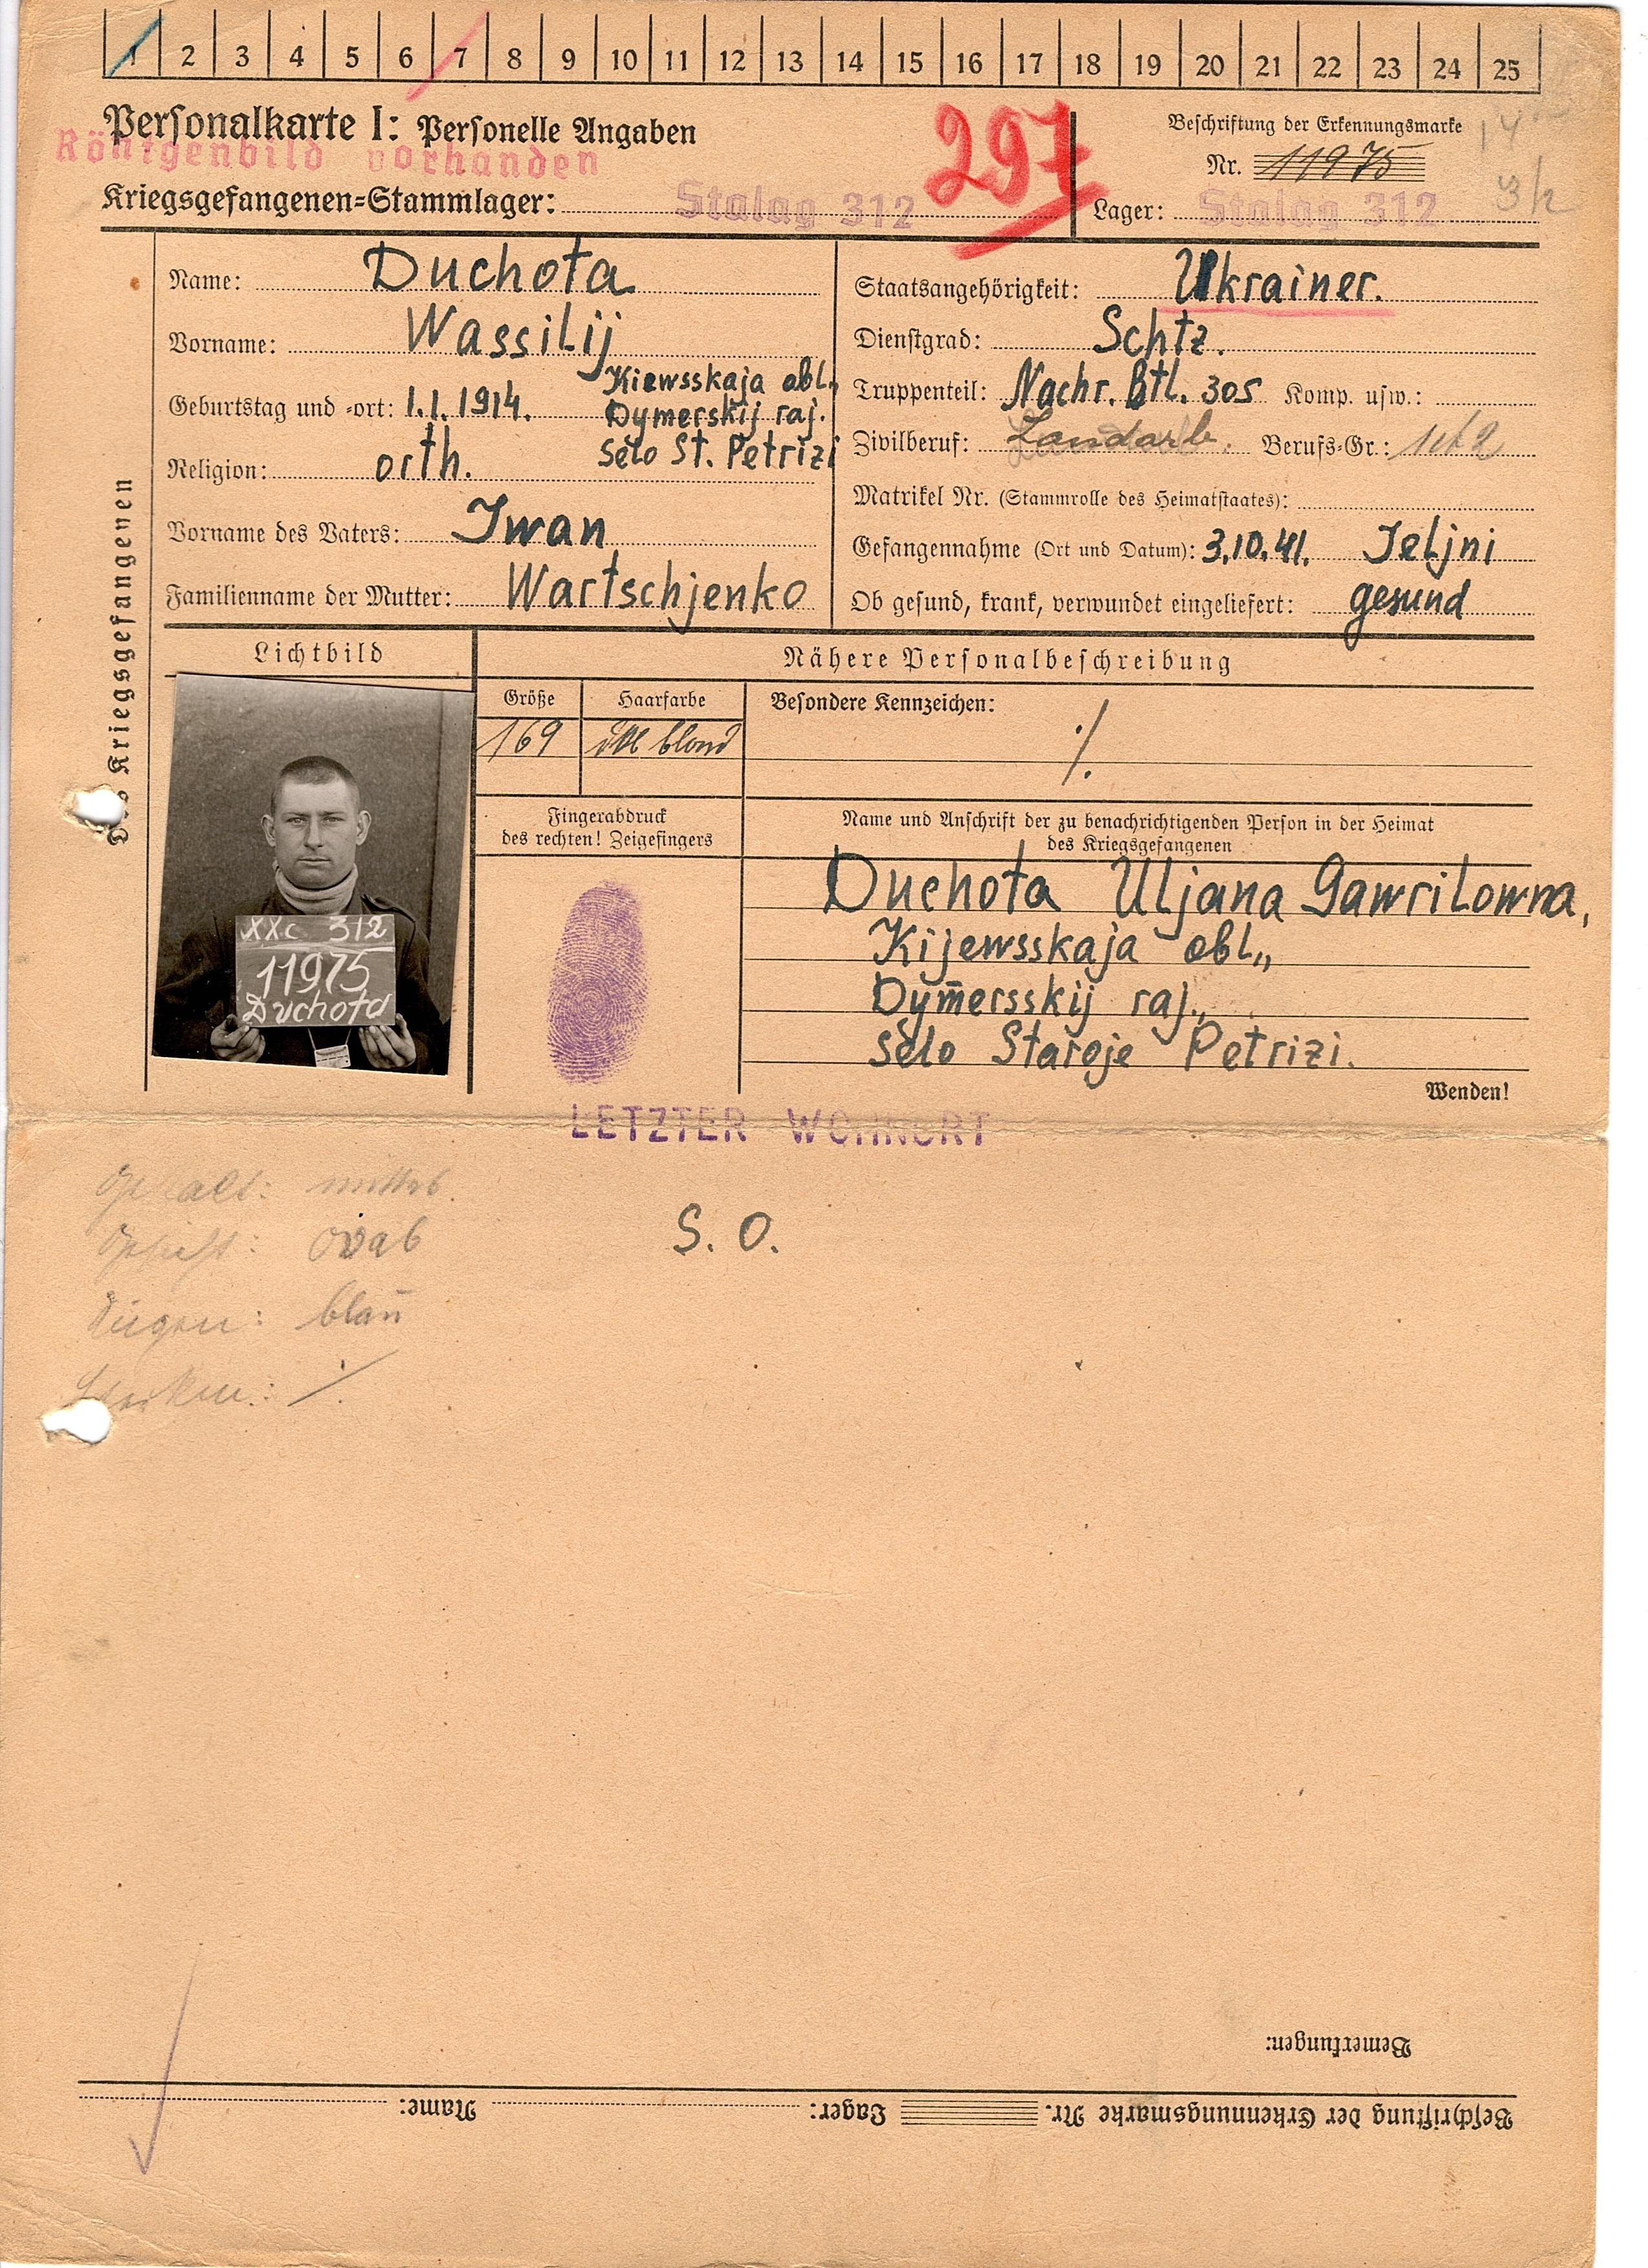 1 2 3 4 5 6 7 8 9 10 11 12 13 14 15 16 17 18 19 20 21 22 23 24 25
Personalkarte I: Personelle Angaben
Röntgenbild vorhanden
297
Beschriftung der Erkennungsmarke
Nr. 11975
Kriegsgefangenen-Stammlager: Stalag 312
Lager: Stalag 312
Des Kriegsgefangenen
Name: Duchota
Vorname: Wassilij
Geburtstag und -ort: 1.1.1914. Kiewsskaja obl.,
Dymerskij raj.
selo St. Petrizi
Religion: orth.
Vorname des Vaters: Iwan
Familienname der Mutter: Wartschjenko
Staatsangehörigkeit: Ukrainer.
Dienstgrad: Schtz.
Truppenteil: Nachr. Btl. 305 Komp. usw.:
Zivilberuf: Landarb. Berufs-Gr.:
Matrikel Nr. (Stammrolle des Heimatstaates):
Gefangennahme (Ort und Datum): 3.10.41. Jeljni
Ob gesund, krank, verwundet eingeliefert: gesund
Lichtbild
Nähere Personalbeschreibung
Größe Haarfarbe Besondere Kennzeichen:
169 dkl blond ·/.
XXc 312
11975
Duchota
Fingerabdruck
des rechten! Zeigefingers
Name und Anschrift der zu benachrichtigenden Person in der Heimat
des Kriegsgefangenen
Duchota Uljana Gawrilowna,
Kijewsskaja obl.,
Dymersskij raj.,
selo Staroje Petrizi.
Wenden!
LETZTER WOHNORT
S. O.
Gestalt: mittel.
Gesicht: oval
Augen: blau
·/.
Bemerkungen:
Beschriftung der Erkennungsmarke Nr. Lager: Name: